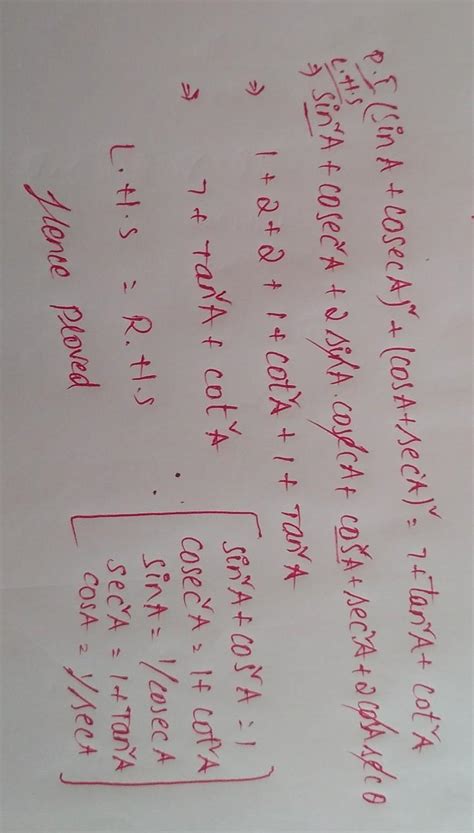 P.T (sinA + cosecA)² + (cosA + secA)² = 7 + tan²A + cot²A
L.H.S
⇒ sin²A + cosec²A + 2 sinA . cosecA + cos²A + sec²A + 2 cosA secθ
⇒ 1 + 2 + 2 + 1 + cot²A + 1 + Tan²A
⇒ 7 + Tan²A + cot²A
L.H.S = R.H.S
Hence Proved
∵
sin²A + cos²A = 1
cosec²A = 1 + cot²A
sinA = 1/cosecA
sec²A = 1 + Tan²A
cosA = 1/secA